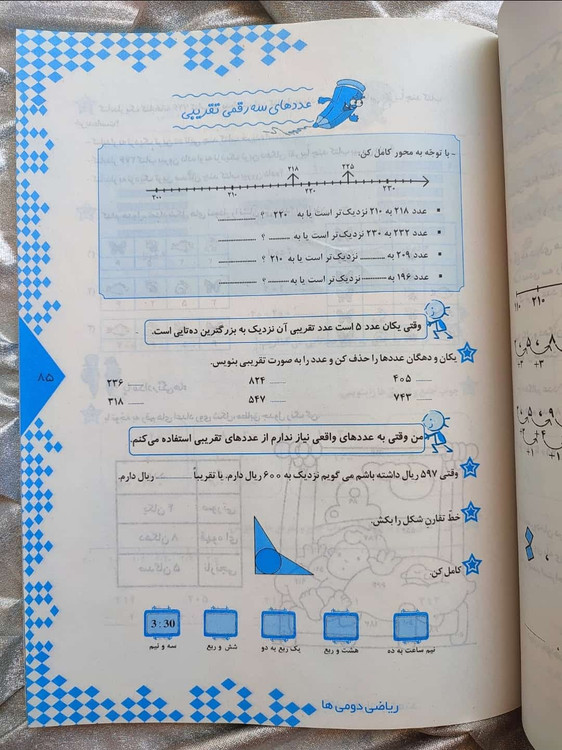 عددهای سه رقمی تقریبی
- با توجه به محور کامل کن.
۲۱۸ ۲۲۵
۲۰۰ ۲۱۰ ۲۲۰ ۲۳۰
• عدد ۲۱۸ به ۲۱۰ نزدیک‌تر است یا به ۲۲۰ ؟ ..........
• عدد ۲۲۲ به ۲۳۰ نزدیک‌تر است یا به .......... ؟ ..........
• عدد ۲۰۹ به .......... نزدیک‌تر است یا به ۲۱۰ ؟ ..........
• عدد ۱۹۶ به .......... نزدیک‌تر است یا به .......... ؟ ..........
وقتی یکان عدد ۵ است عدد تقریبی آن نزدیک به بزرگترین ده‌تایی است.
یکان و دهگان عددها را حذف کن و عدد را به صورت تقریبی بنویس.
۴۰۵ ۸۲۴ ۲۳۶
۷۴۳ ۵۴۷ ۳۱۸
من وقتی به عددهای واقعی نیاز ندارم از عددهای تقریبی استفاده می‌کنم.
وقتی ۵۹۷ ریال داشته باشم می گویم نزدیک به ۶۰۰ ریال دارم. یا تقریباً .......... ریال دارم.
خطّ تقارن شکل را بکش.
کامل کن.
3:30
نیم ساعت به ده هشت و ربع یک ربع به دو شش و ربع سه و نیم
ریاضی دومی ها
۸۵